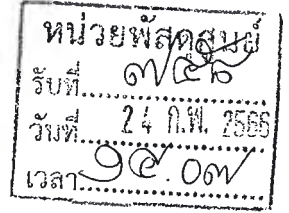 หน่วยพัสดุศูนย์
รับที่
วันที่ 24 ก.พ. 2566
เวลา ๑๕.๐๗